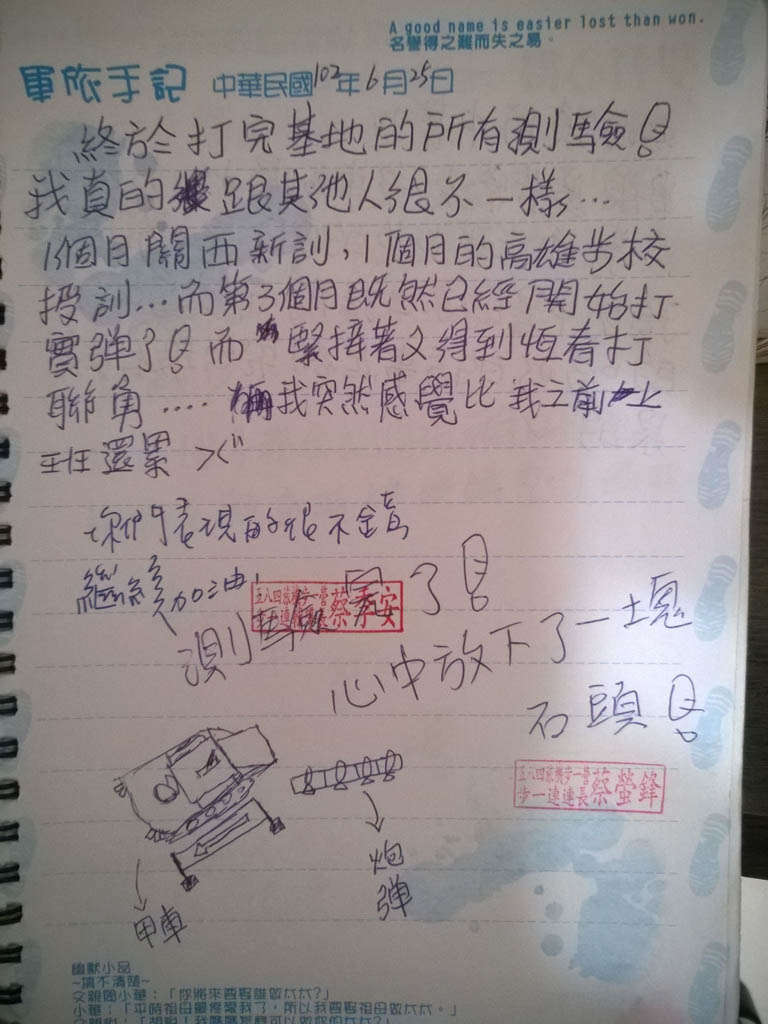 A good name is easier lost than won.
名譽得之難而失之易。
軍旅手記 中華民國102年6月25日
終於打完基地的所有測驗!
我真的跟其他人很不一樣...
1個月關西新訓,1個月的高雄步校
授訓...而第3個月既然已經開始打
實彈了!而緊接著又得到恆春打
聯勇....我突然感覺比我之前上
班還累 ><
你們表現的很不錯
繼續加油!
測驗完了!
五八四旅機步一營
步一連
蔡 安
心中放下了一塊
石頭!
五八四旅機步一營
步一連連長
蔡螢鋒
炮
彈
甲車
幽默小品
~搞不清楚~
父親問小華:「你將來要娶誰做太太?」
小華:「平時祖母最疼愛我了,所以我要娶祖母做太太。」